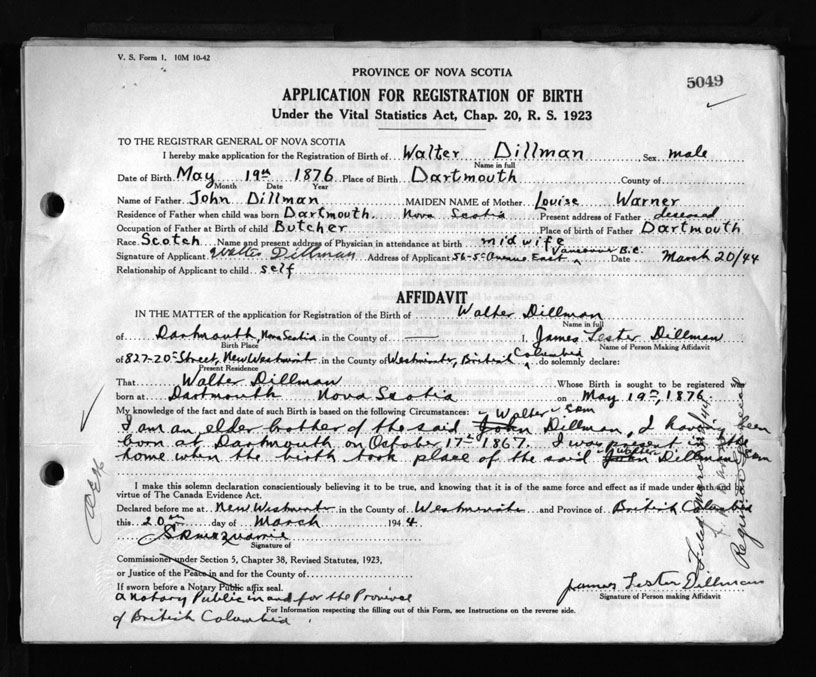 V. S. Form 1. 10M 10-42
PROVINCE OF NOVA SCOTIA
5049
APPLICATION FOR REGISTRATION OF BIRTH
Under the Vital Statistics Act, Chap. 20, R. S. 1923
TO THE REGISTRAR GENERAL OF NOVA SCOTIA
I hereby make application for the Registration of Birth of Walter Dillman Sex male
Name in full
Date of Birth May 19th 1876 Place of Birth Dartmouth County of
Month Date Year
Name of Father John Dillman MAIDEN NAME of Mother Louise Warner
Residence of Father when child was born Dartmouth. Nova Scotia Present address of Father deseased
Occupation of Father at Birth of child Butcher Place of birth of Father Dartmouth
Race Scotch Name and present address of Physician in attendance at birth midwife
Signature of Applicant Walter Dillman Address of Applicant 56-5th Avenue East Vancouver B.C. Date March 20/44
Relationship of Applicant to child self
AFFIDAVIT
IN THE MATTER of the application for Registration of the Birth of Walter Dillman
Name in full
of Dartmouth, Nova Scotia in the County of I, James Lester Dillman
Birth Place Name of Person Making Affidavit
of 827-20th Street, New Westmr in the County of Westminster, British Columbia do solemnly declare:
Present Residence
That Walter Dillman Whose Birth is sought to be registered was
born at Dartmouth Nova Scotia on May 19th, 1876
My knowledge of the fact and date of such Birth is based on the following Circumstances:
I am an elder brother of the said John Walter Dillman, I having been
born at Dartmouth on October 17th 1867. I was present in the
home when the birth took place of the said John Walter Dillman
I make this solemn declaration conscientiously believing it to be true, and knowing that it is of the same force and effect as if made under oath and by
virtue of The Canada Evidence Act.
Declared before me at New Westminster in the County of Westminster and Province of British Columbia
this 20th day of March 1944
Signature of
Commissioner under Section 5, Chapter 38, Revised Statutes, 1923,
or Justice of the Peace in and for the County of
If sworn before a Notary Public affix seal.
a Notary Public in and for the Province
of British Columbia
James Lester Dillman
Signature of Person making Affidavit
For Information respecting the filling out of this Form, see Instructions on the reverse side.